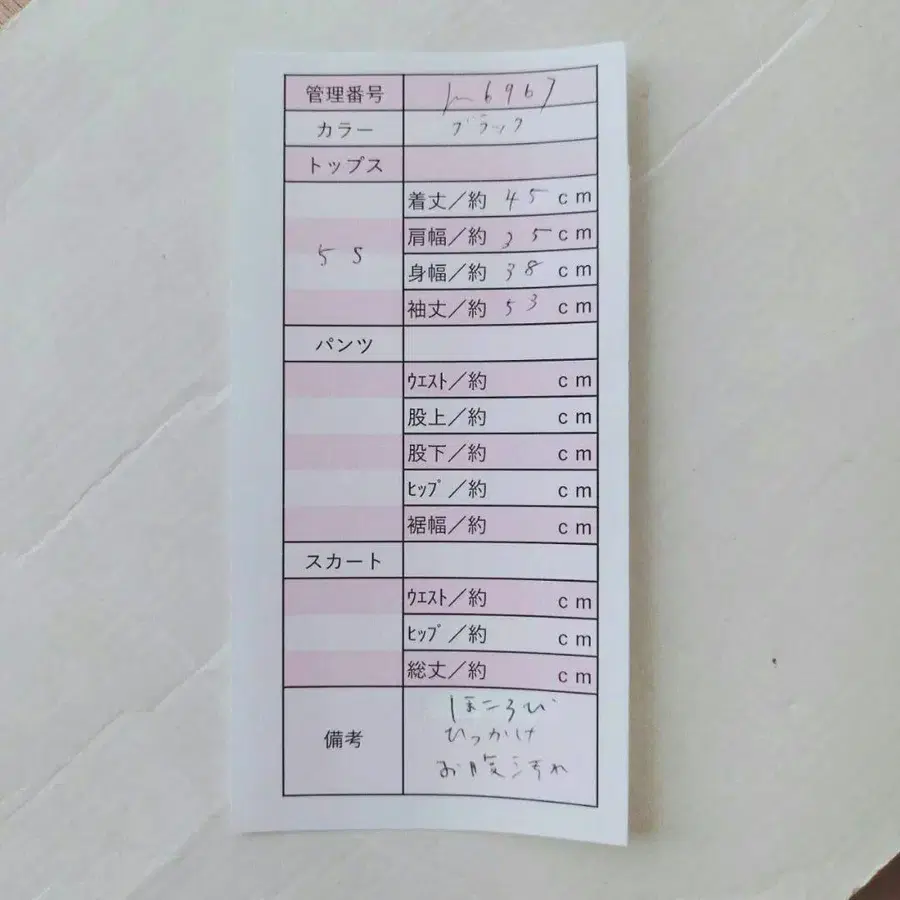 管理番号 6967
カラー ブラック
トップス
着丈／約 45 cm
肩幅／約 35 cm
5S
身幅／約 38 cm
袖丈／約 53 cm
パンツ
ｳｴｽﾄ／約 cm
股上／約 cm
股下／約 cm
ﾋｯﾌﾟ／約 cm
裾幅／約 cm
スカート
ｳｴｽﾄ／約 cm
ﾋｯﾌﾟ／約 cm
総丈／約 cm
ほころび
備考 ひっかけ
お腹汚れ